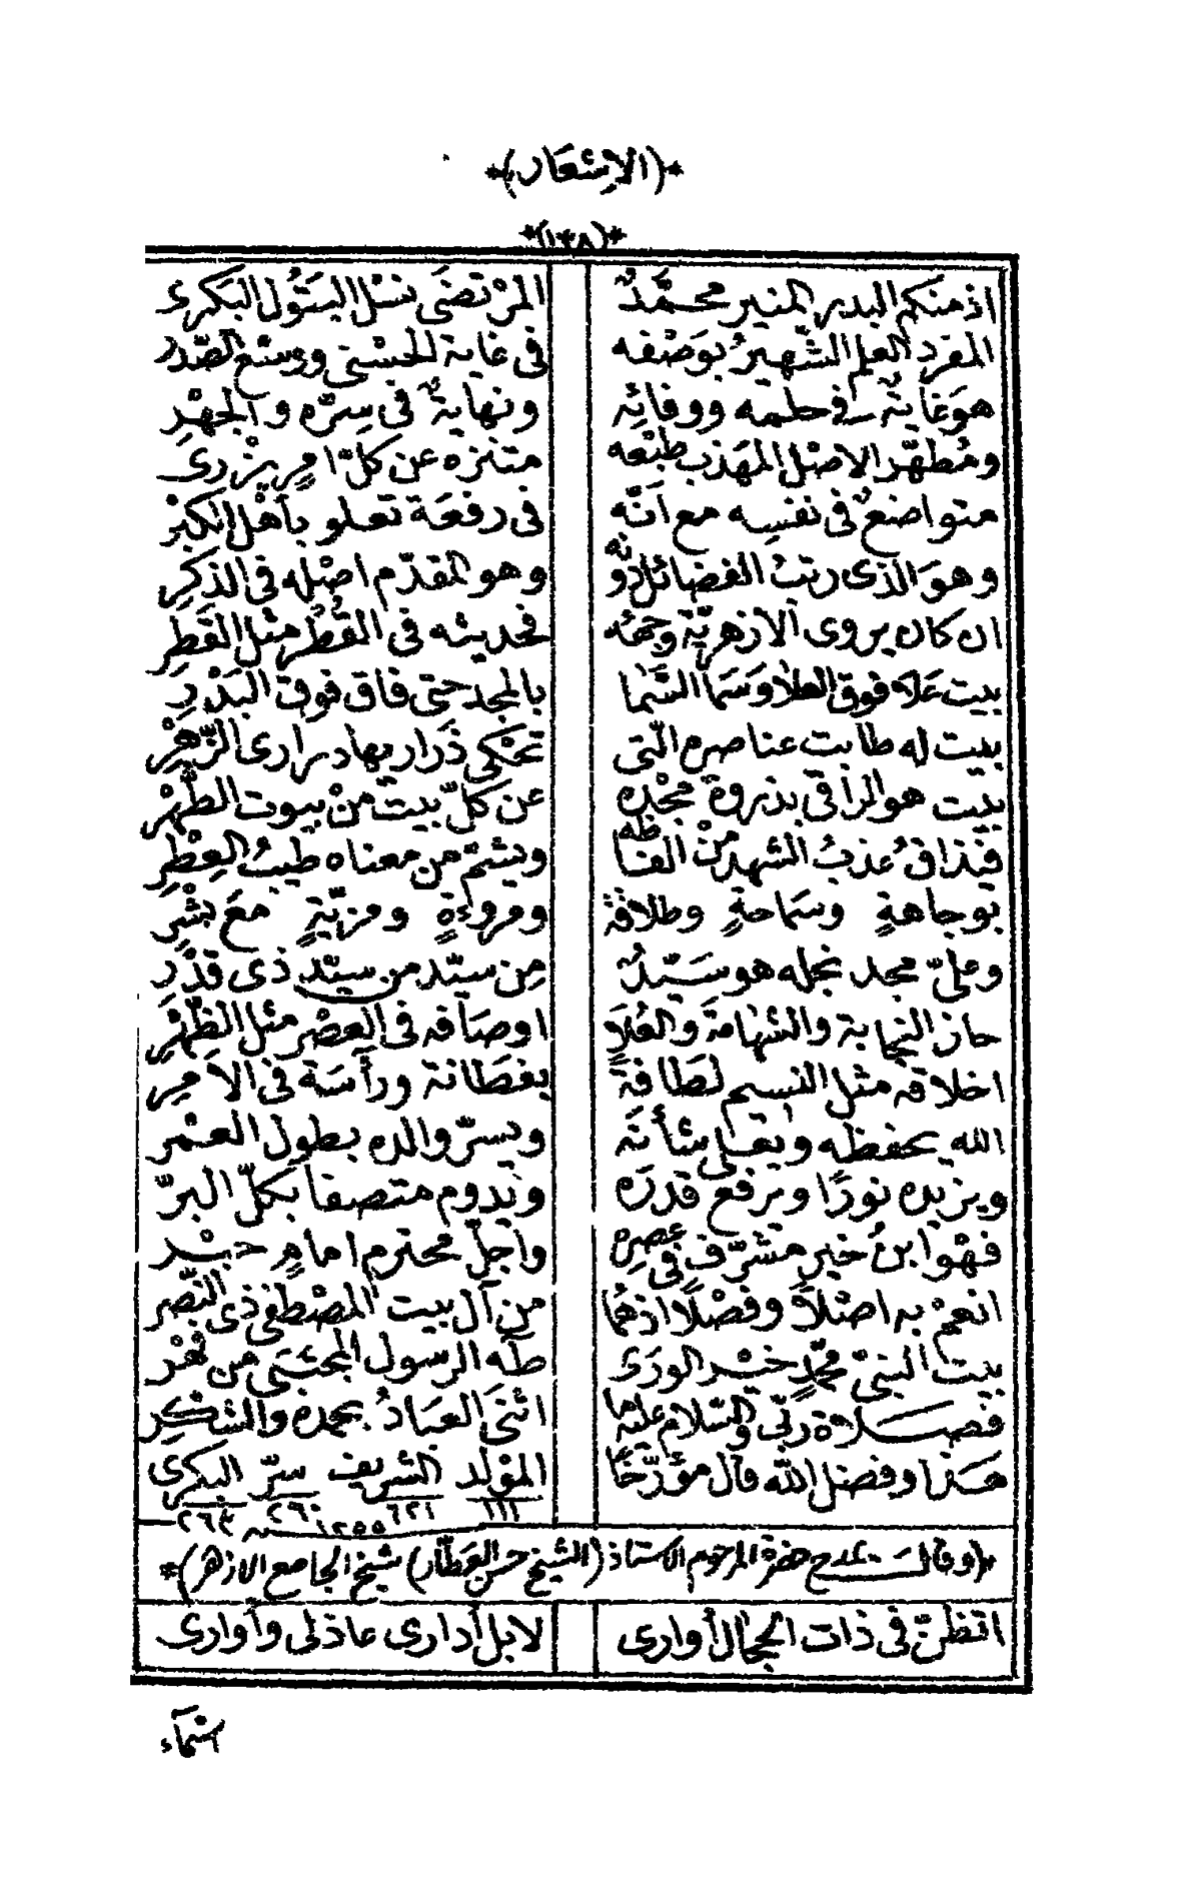 *(الاشعار)*
*(١٣٨)*
اذ منكم البدر المنير محمّدٌ المرْتضَى نسْل البَتُول البَكرى
المفرد العلم الشّهيرُ بوَصْفه فى غاية الحسْنى ووسْع الصّدر
هوَغايةٌ فى حلمه ووفائه ونهايةٌ فى سِرّه والجهْرِ
ومُطهّر الاصْل المهَذب طبْعه متنزه عن كلّ امرٍ يزْرى
متواضعٌ فى نفسِه مع اَنّه فى رفعَة تعلو باَهْل الكبْر
وهوَ الذى رتبُ الفضائل دُونه وهو المقدّم اصْله فى الذكِرِ
ان كان يروى الازهريّة وجهُه فحديثه فى القُطْرِ مثْل القَطْرِ
بيت عَلاَ فوق العلا وَسَمَا السَّما بالمجد حتى فاق فوق البَدْرِ
بيت له طابت عناصره الّتى تحْكى ذَرَاريها درارى الزّهْرِ
بيت هو الراقى بذروة مجْده عن كلّ بيت منْ بيوت الطّهْر
فيذاقُ عذبُ الشهد منْ الفاظه ويشمّ من معناه طيبُ العِطْرِ
بوجاهةٍ وسَماحةٍ وطلاقة ومروءةٍ ومزيّةٍ معَ بشْرِ
وعلىّ مجد نجله هو سَيّدٌ مِن سيّد من سيّد ذى قدْرِ
حاز النجابة والشهَامَةَ والعُلاَ اوصَافه فى العصْر مثل الظّهْرِ
اخلاقه مثل النسيم لَطَافةً بفطَانة ورأسَة فى الاَمرِ
الله يحفظه ويعلى شأنَه ويسرّ والده بطول العمْر
ويزيده نورًا ويرفع قدرَه ويَدوم متصفا بكلّ البرّ
فهْو ابنُ خير مشرّفٍ فى عصرِه واجلّ محترم امامٍ حبْر
انعمْ به اصْلاً وفضْلا اذهُما من آل بيت المصْطفى ذى النّصْر
بيت النبىّ محمّدٍ خيْر الورَى طَه الرسول المجتبَى من فهْر
فصلاة ربّى والسّلام عليهما اثنَى العبَادُ بحمده والشكْرِ
هذا وفضل الله قال مؤرّخًا المَوْلد الشريف سرّ البكرى
١١١ ٦٢١ ٢٦٠ ٢٦٣
سنه ١٢٥٥
*(وقالَ يمدح حضرة المرحوم الاستاذ (الشيخ حسن العطّار) شيخ الجامع الازهر)*
اتظنّ فى ذات الجمال أوارى لا بل أدارى عاذلى وأوارى
اسمآء